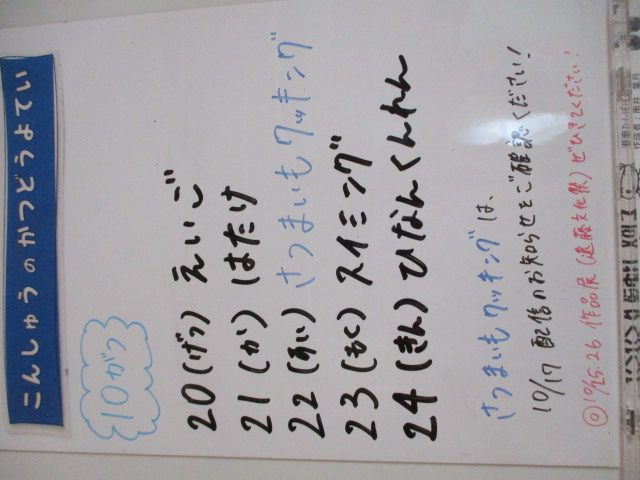 こんしゅうのかつどうよてい
10がつ
20(げつ) えいご
21(か) はたけ
22(すい) さつまいもクッキング
23(もく) スイミング
24(きん) ひなんくんれん
さつまいもクッキングは、
10/17 配信のお知らせをご確認ください!
◎10/25.26 作品展(遠藤文化祭)ぜひきてください!